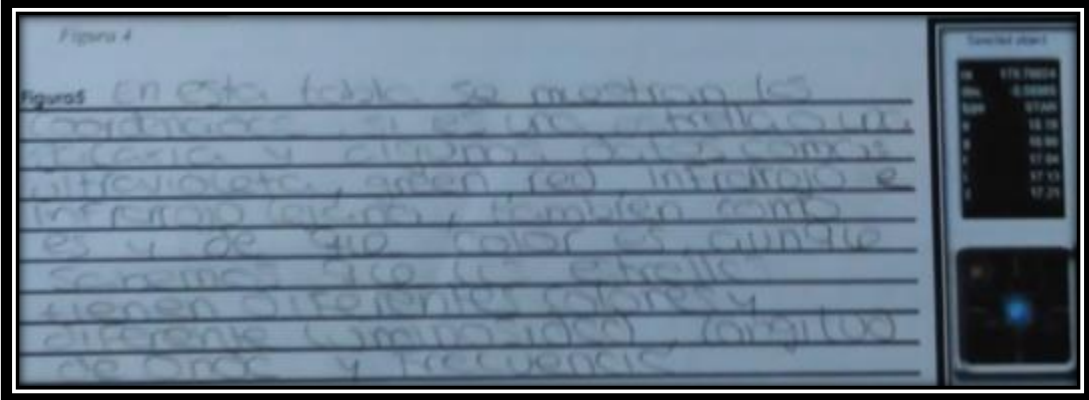 Figura 4
Figura5 En esta tabla se muestran las
coordenadas, si es una estrella o una
galaxia y algunos datos como
ultravioleta, green red, infrarrojo e
infrarrojo lejano, también como
es y de que color es, aunque
sabemos que las estrellas
tienen diferentes colores y
diferente luminosidad, longitud
de onda y frecuencia
Selected object
STAR
17.04
17.13
17.21